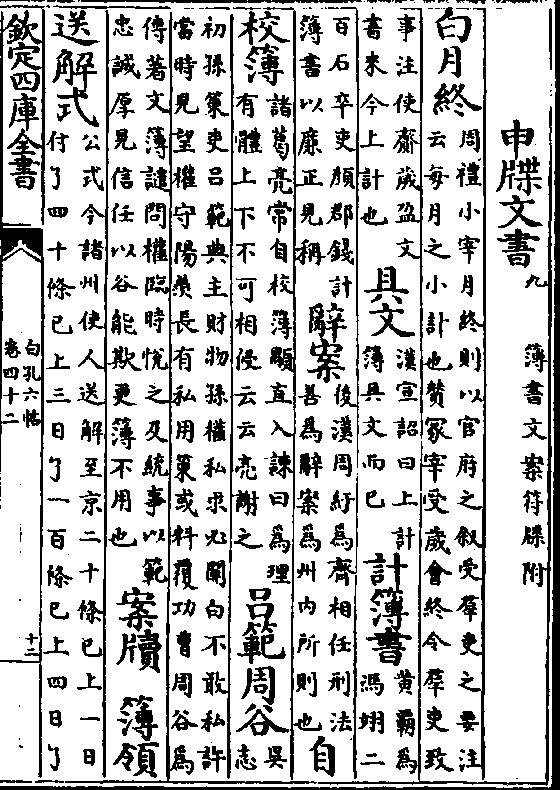 申牒文書九　簿書文案符牒附
白月終　周禮小宰月終則以官府之叙受羣吏之要注
云每月之小計也贊冢宰受歲會終令羣吏致
事注使齎歲盈文
書來今上計也　具文　漢宣詔曰上計
簿具文而已　計簿書　黄霸為
馮翊二
百石卒史領郡錢計
簿書以廉正見稱　辭案　後漢周紆為齊相任刑法
善為辭案為州内所則也　自
校簿　諸葛亮常自校簿顒直入諫曰為理
有體上下不可相侵云云亮謝之　吕範周谷　吳
志
初孫策吏吕範典主財物孫權私求必關白不敢私許
當時見望權守陽羨長有私用策或料覆功曹周谷為
傅著文簿譴問權臨時悅之及統事以範
忠誠厚見信任以谷能欺更簿不用也　案牘　簿領
送解式　公式令諸州使人送解至京二十條已上一日
付了四十條已上三日了一百條已上四日了
欽定四庫全書
白孔六帖
卷四十二
十二